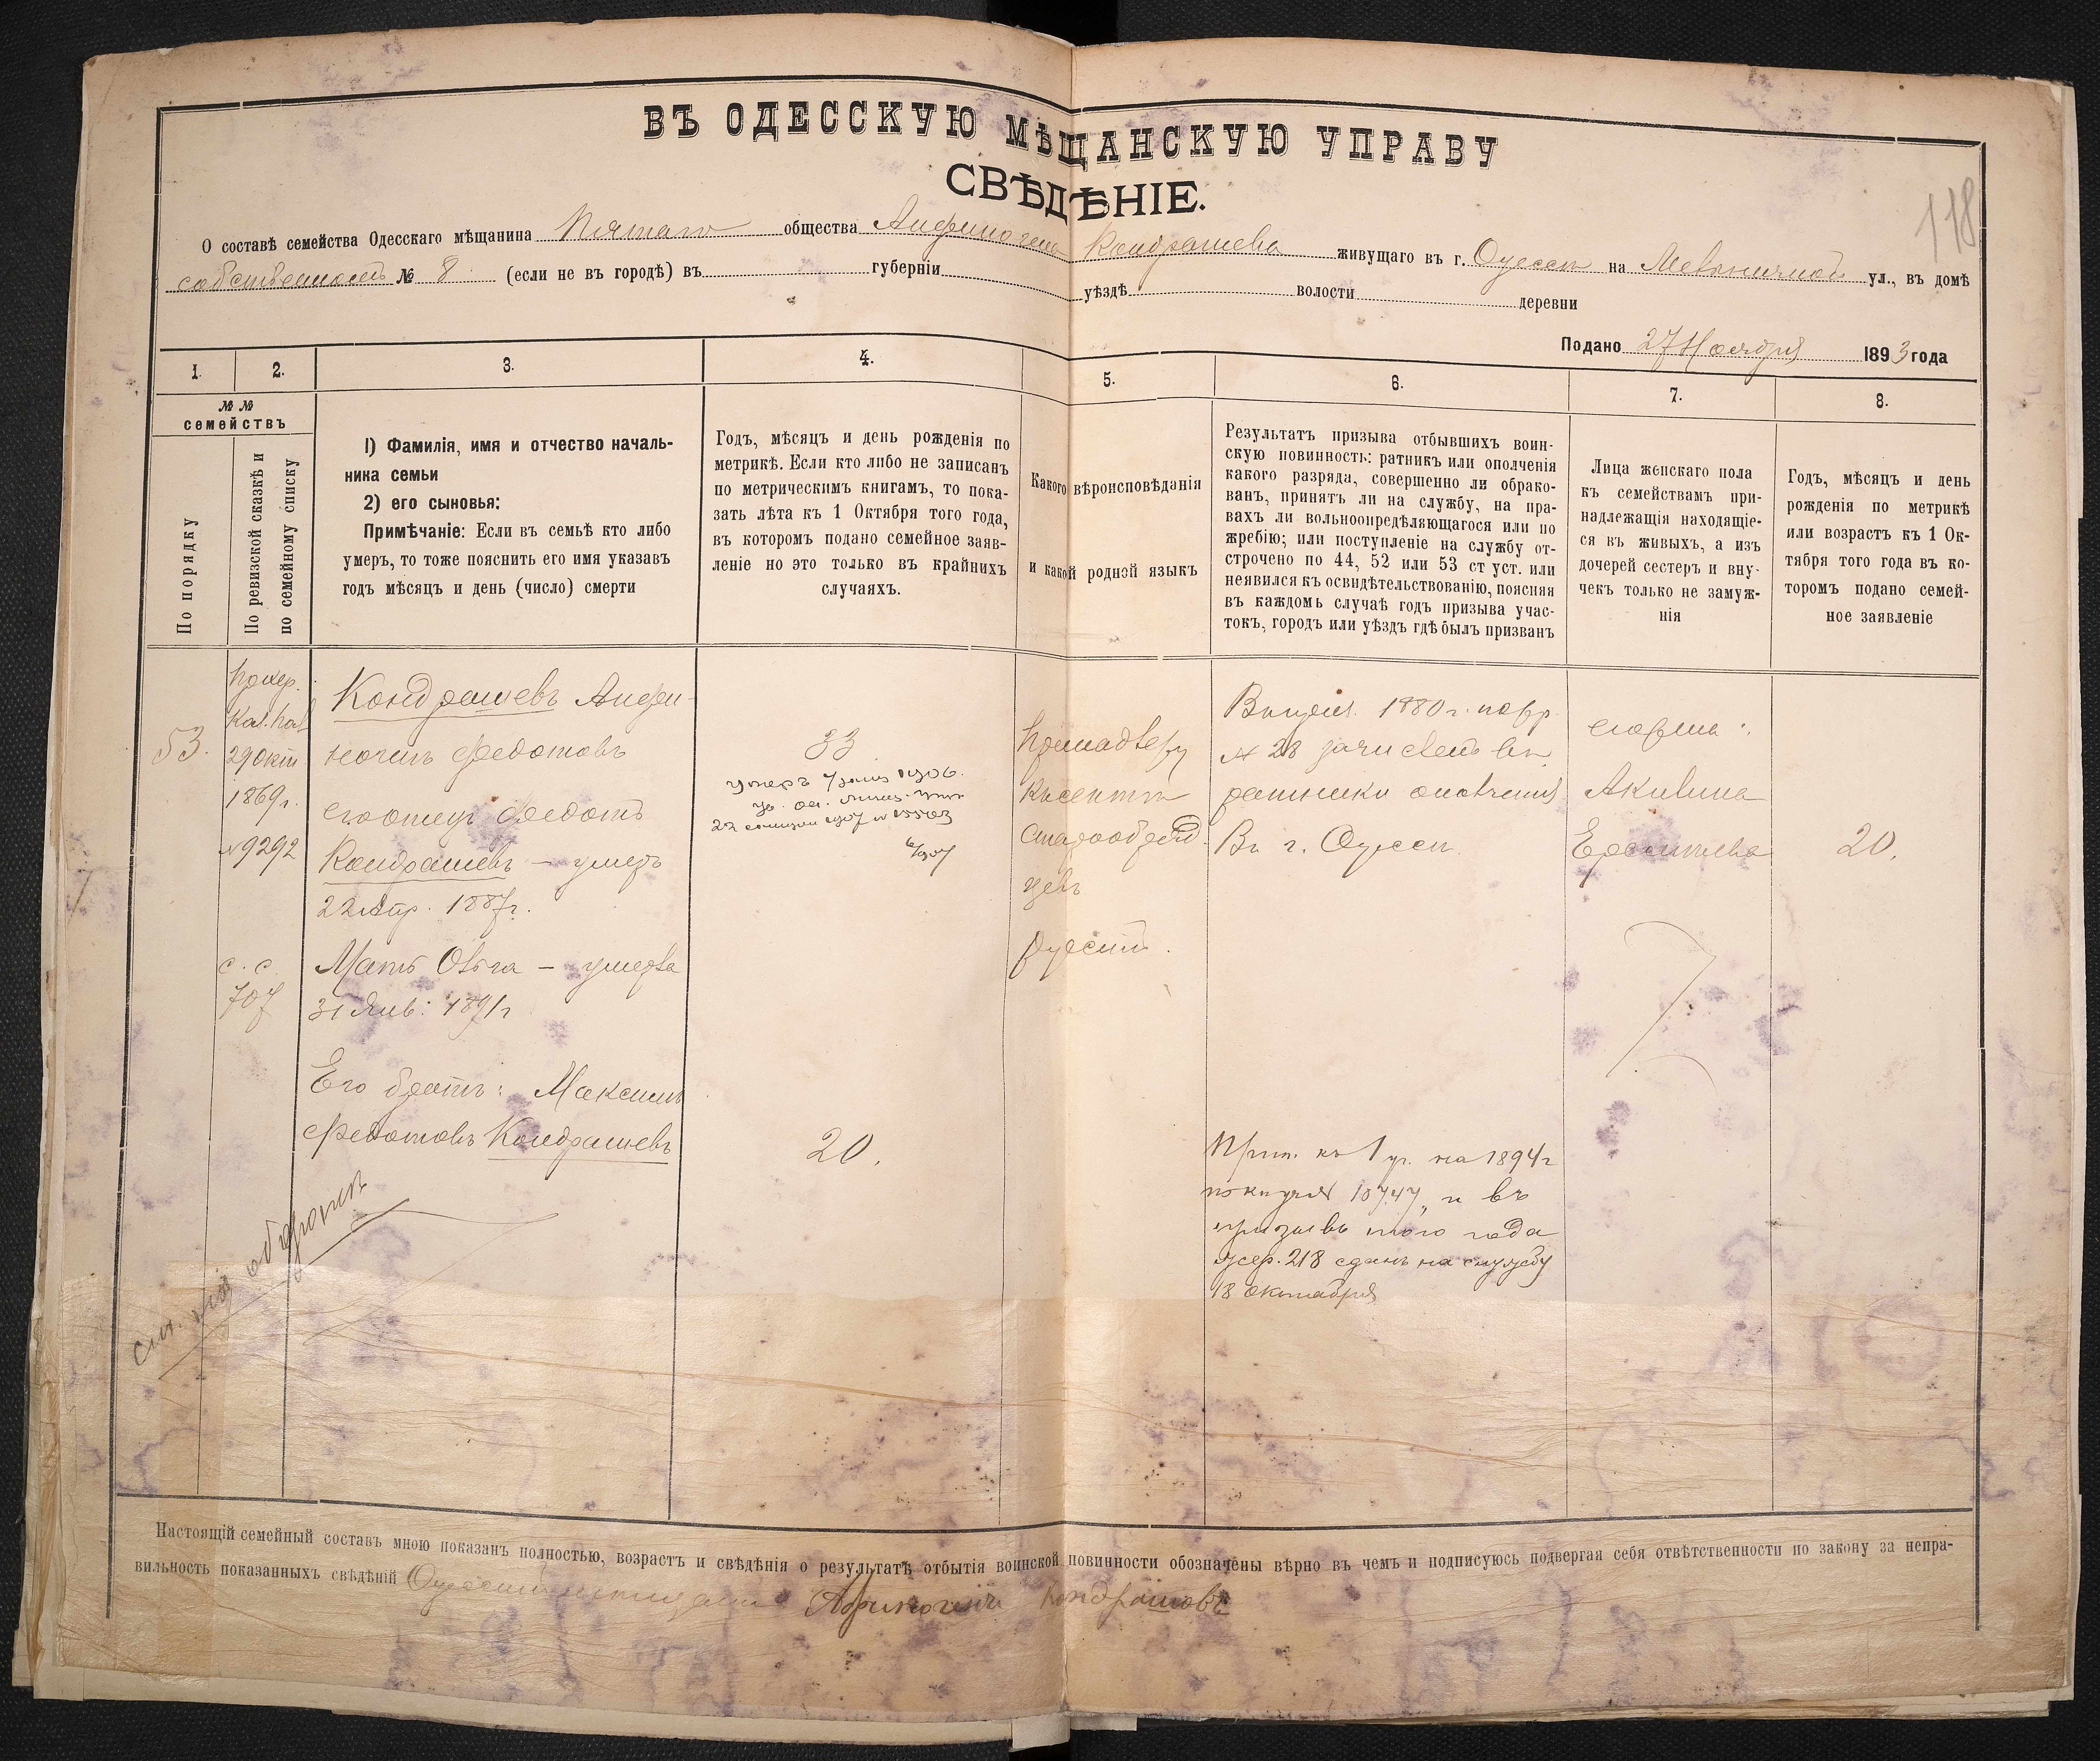 ВЪ ОДЕССКУЮ МѢЩАНСКУЮ УПРАВУ
СВѢДѢНІЕ.
118
О составѣ семейства Одесскаго мѣщанина Пятаго общества Анфиногена Кондрашева живущаго въ г. Одессѣ на Мельничной ул., въ домѣ
собственномъ № 8 (если не въ городѣ) въ губерніи уѣздѣ волости деревни
Подано 27 Ноября 1893 года
1. 2. 3. 4. 5. 6. 7. 8.
№ №
семействъ
По порядку
По ревизской сказкѣ и
по семейному списку
1) Фамилія, имя и отчество началь-
ника семьи
2) его сыновья:
Примѣчаніе: Если въ семьѣ кто либо
умеръ, то тоже пояснить его имя указавъ
годъ мѣсяцъ и день (число) смерти
Годъ, мѣсяцъ и день рожденія по
метрикѣ. Если кто либо не записанъ
по метрическимъ книгамъ, то пока-
зать лѣта къ 1 Октября того года,
въ которомъ подано семейное заяв-
леніе но это только въ крайнихъ
случаяхъ.
Какого вѣроисповѣданія
и какой родной языкъ
Результатъ призыва отбывшихъ воин-
скую повинность: ратникъ или ополченія
какого разряда, совершенно ли обрако-
ванъ, принятъ ли на службу, на пра-
вахъ ли вольноопредѣляющагося или по
жребію; или поступленіе на службу от-
строчено по 44, 52 или 53 ст уст. или
неявился къ освидѣтельствованію, поясняя
въ каждомъ случаѣ годъ призыва учас-
токъ, городъ или уѣздъ гдѣ былъ призванъ
Лица женскаго пола
къ семействамъ при-
надлежащія находящіе-
ся въ живыхъ, а изъ
дочерей сестеръ и вну-
чекъ только не замуж-
нія
Годъ, мѣсяцъ и день
рожденія по метрикѣ
или возрастъ къ 1 Ок-
тября того года въ ко-
торомъ подано семей-
ное заявленіе
53.
29 окт
1869 г.
№ 9292
с. с.
707
Кондрашевъ Анфи-
ногенъ Федотовъ
его отецъ Федотъ
Кондрашевъ — умеръ
22 Апр. 1887 г.
Мать Ольга — умерла
31 Янв: 1891 г
Его братъ: Максимъ
Федотовъ Кондрашевъ
см. на оборотѣ
33
умеръ 1906.
22 1907 №
20.
Принадлежу
Къ сектѣ
старообряд
цевъ
Русскій.
1880 г.
№ 28 зачисленъ въ
ратники ополченія
Въ г. Одессѣ
къ 1 уч. на 1894 г
10747, и въ
призывъ того года
жер. 218 сданъ на службу
18 октября
его жена:
Акилина
20.
Настоящій семейный составъ мною показанъ полностью, возрастъ и свѣдѣнія о результатѣ отбытія воинской повинности обозначены вѣрно въ чемъ и подписуюсь подвергая себя отвѣтственности по закону за непра-
вильность показанныхъ свѣдѣній Одесскій мещанинъ Афиногенъ Кондрашовъ